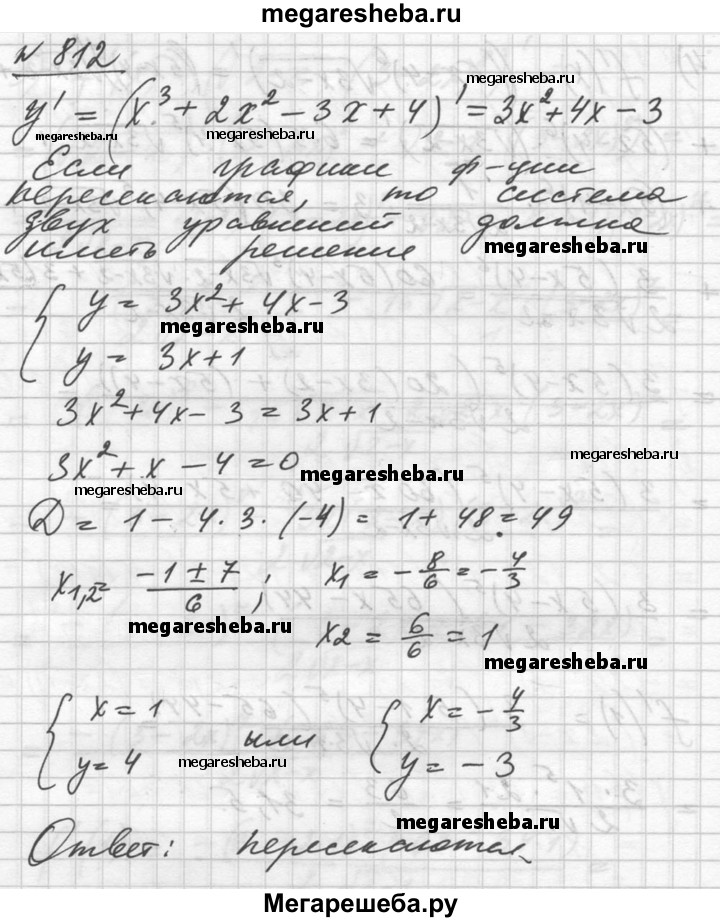 megaresheba.ru
№ 812
megaresheba.ru
y' = (x³ + 2x² - 3x + 4)' = 3x² + 4x - 3
megaresheba.ru megaresheba.ru
Если графики ф-ции
пересекаются, то система
двух уравнений должна
иметь решение megaresheba.ru
{ y = 3x² + 4x - 3
megaresheba.ru
y = 3x + 1
3x² + 4x - 3 = 3x + 1
3x² + x - 4 = 0 megaresheba.ru megaresheba.ru
megaresheba.ru
D = 1 - 4·3·(-4) = 1 + 48 = 49
x1,2 = (-1 ± 7)/6 ; x1 = -8/6 = -4/3
megaresheba.ru x2 = 6/6 = 1
megaresheba.ru
{ x = 1 { x = -4/3
или
y = 4 y = -3
megaresheba.ru
megaresheba.ru
Ответ: пересекаются
Мегарешеба.ру